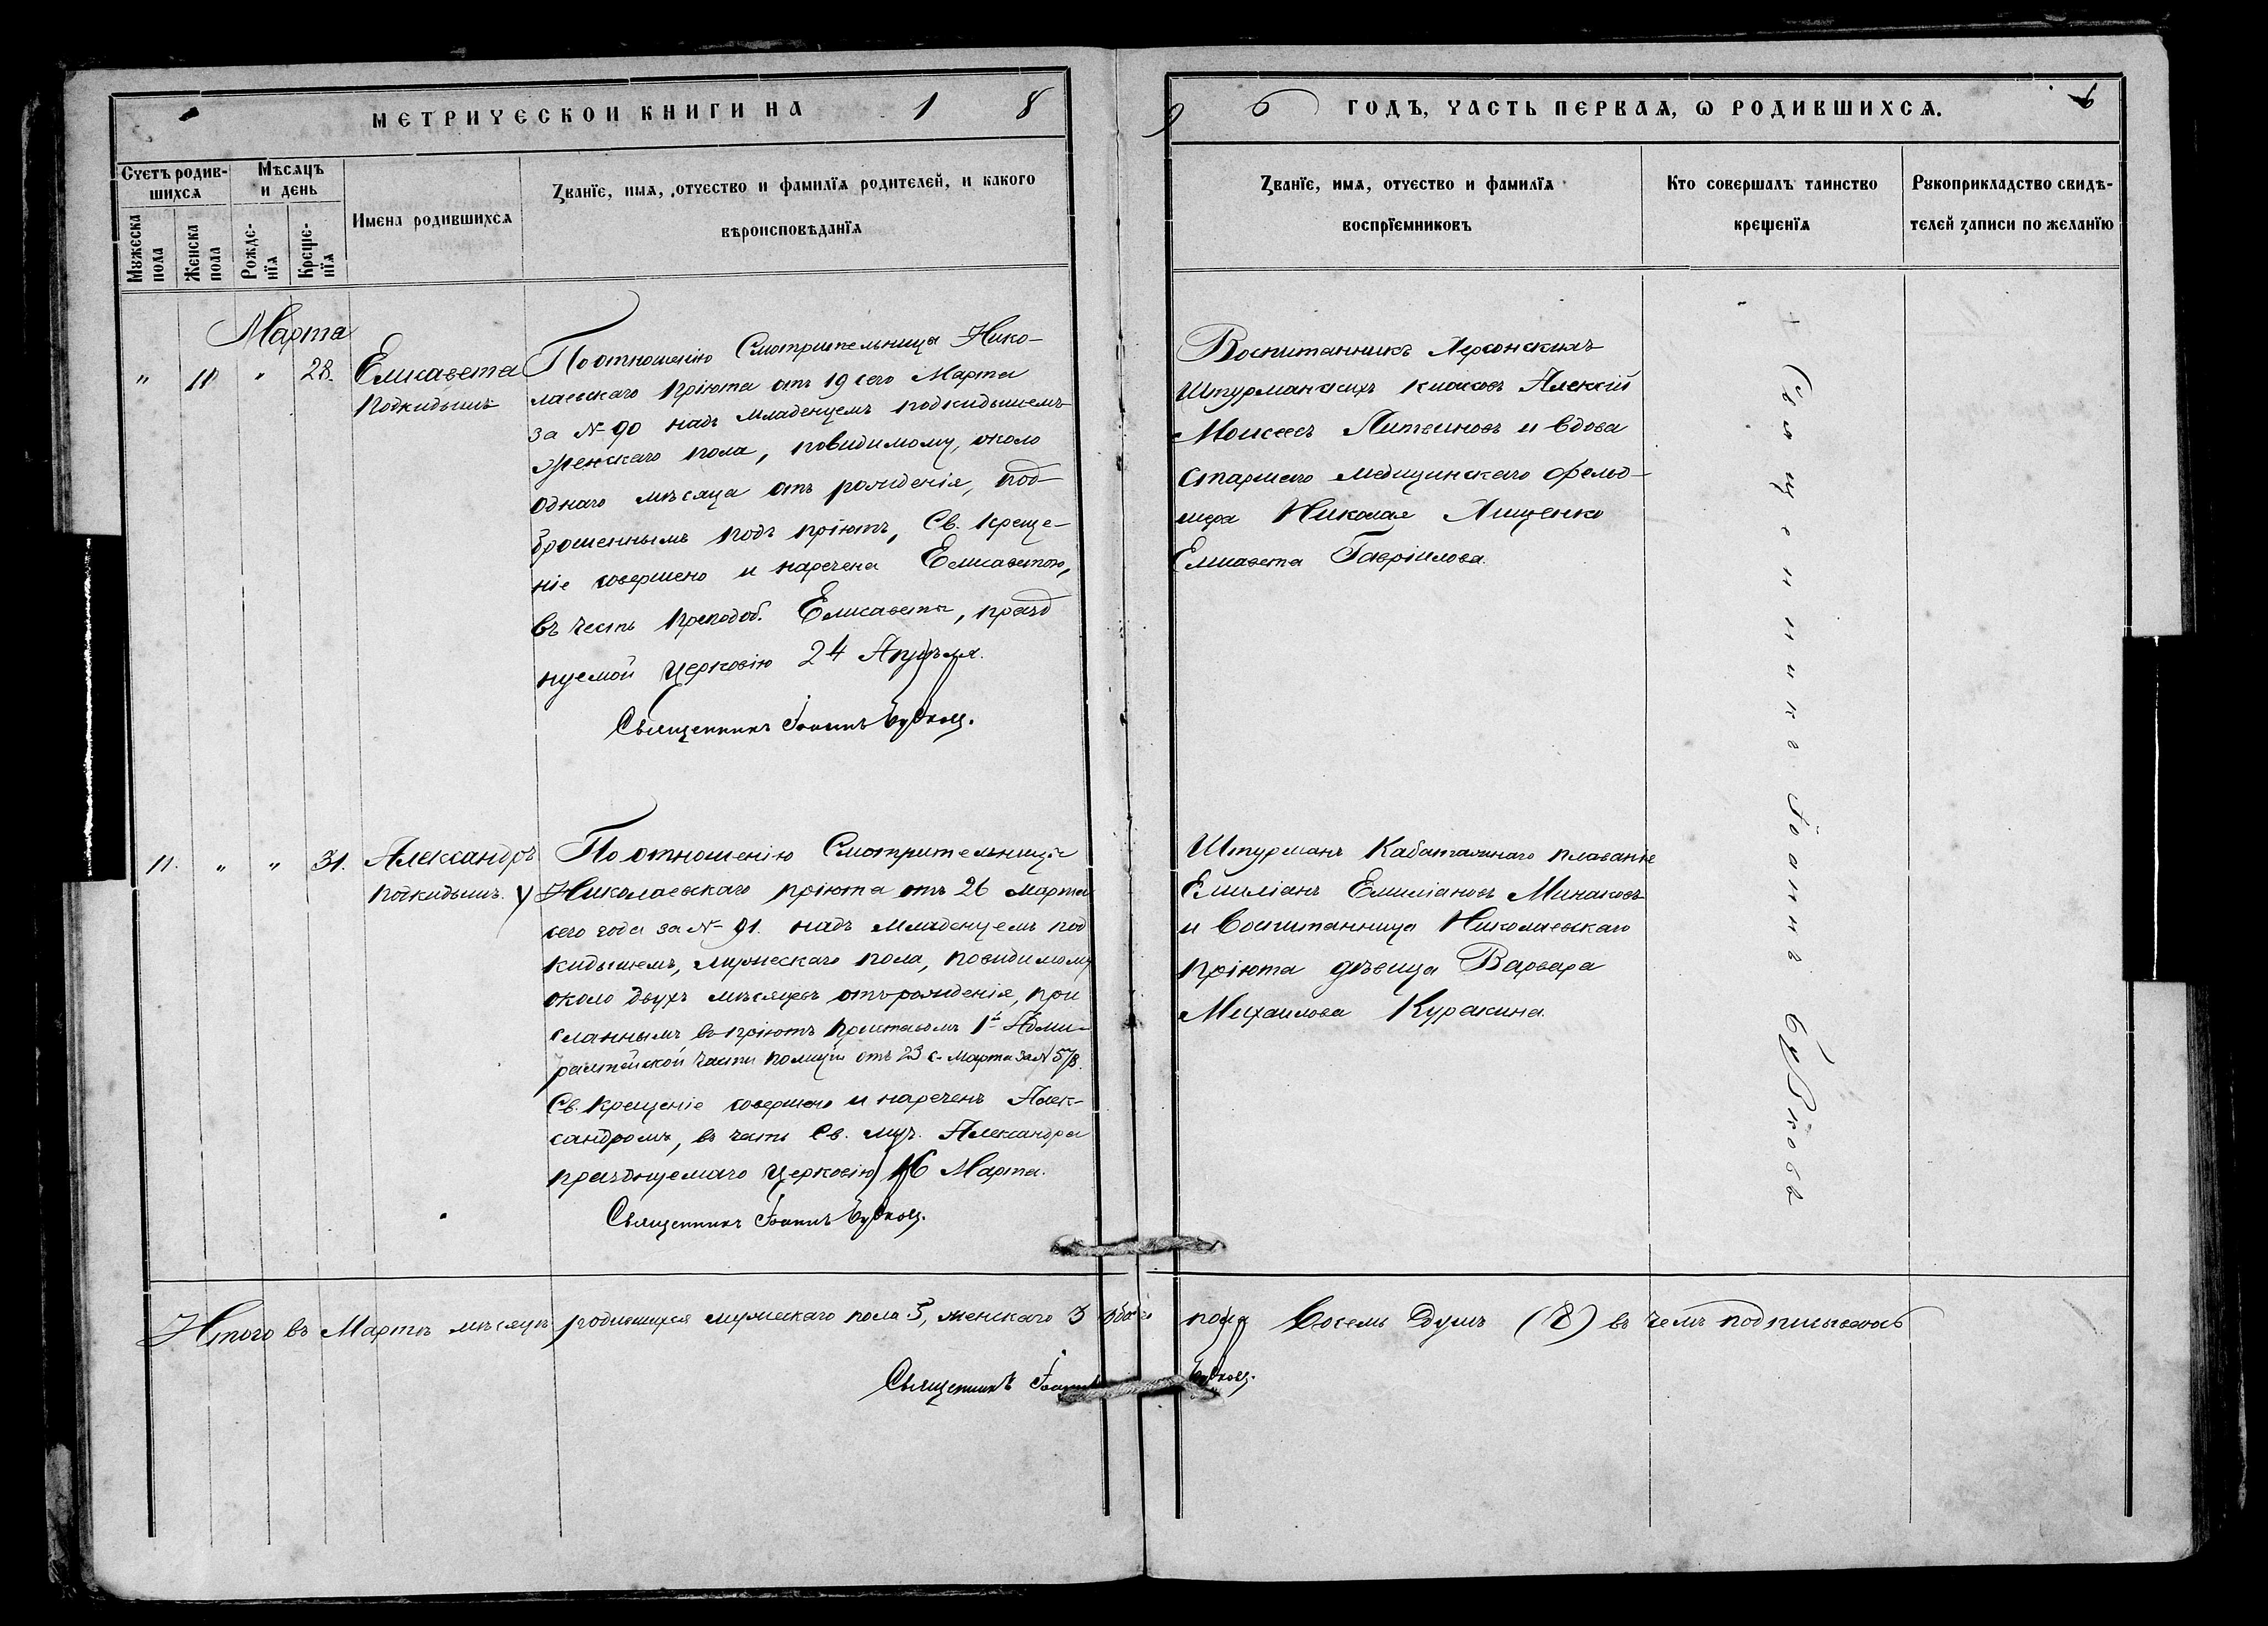 МЕТРИЧЕСКОИ КНИГИ НА 1 8
9 6 ГОДЪ, ЧАСТЬ ПЕРВАѦ, Ѡ РОДИВШИХСѦ. 6
Счетъ родив-
шихсѧ
Мѣсѧцъ
и день
Мꙋжеска
пола
Женска
пола
Рожде-
нїѧ
Креще-
нїѧ
Имена родившихсѧ
Ꙁванїе, имѧ, отчество и фамилїѧ родителей, и какого
вѣроисповѣданїѧ
Ꙁванїе, имѧ, отчество и фамилїѧ
воспрїемниковъ
Кто совершалъ таинство
крещенїѧ
Рꙋкоприкладство свидѣ-
телей ꙁаписи по желанїю
Марта
" 11 " 28. Елисавета
Подкидышъ
По отношенію Смотрительницы Нико-
лаевскаго пріюта отъ 19 сего Марта
за № 90 надъ младенцемъ подкидышемъ
женскаго пола, повидимому, около
одного мѣсяца отъ рожденія, под-
брошеннымъ подъ пріютъ, Св. Креще-
ніе совершено и наречена Елисаветою,
въ честь преподоб. Елисаветы, празд
нуемой Церковію 24 Апрѣля.
Священникъ Іоаннъ Будковъ.
Воспитанникъ Херсонскихъ
Штурманскихъ классовъ Алексій
Моисеевъ Литвиновъ и вдова
старшаго медицинскаго фельд-
шера Николая Лищенко
Елисавета Гавріилова.
11. " " 31. Александръ
Подкидышъ.
По отношенію Смотрительницы
Николаевскаго пріюта отъ 26 марта
сего года за № 91. надъ младенцемъ под
кидышемъ, мужескаго пола, повидимому
около двухъ мѣсяцевъ отъ рожденія, при
сланнымъ въ пріютъ Приставомъ 1й Адми-
ралтейской части полиціи отъ 23 с. Марта за № 578.
Св. Крещеніе совершено и нареченъ Алек-
сандромъ, въ честь Св. муч. Александра
празднуемаго Церковію 16 Марта.
Священникъ Іоаннъ Будковъ.
Штурманъ Каботажнаго плаванія
Емиліанъ Емиліановъ Минаковъ
и Воспитанница Николаевскаго
пріюта дѣвица Варвара
Михаилова Куракина.
Священникъ Іоаннъ Будковъ
Итого въ Мартѣ мѣсяцѣ родившихся мужескаго пола 5, женскаго 3 обоего пола восемь душъ (8) въ чемъ подписываюсь
Священникъ Іоаннъ Будковъ.